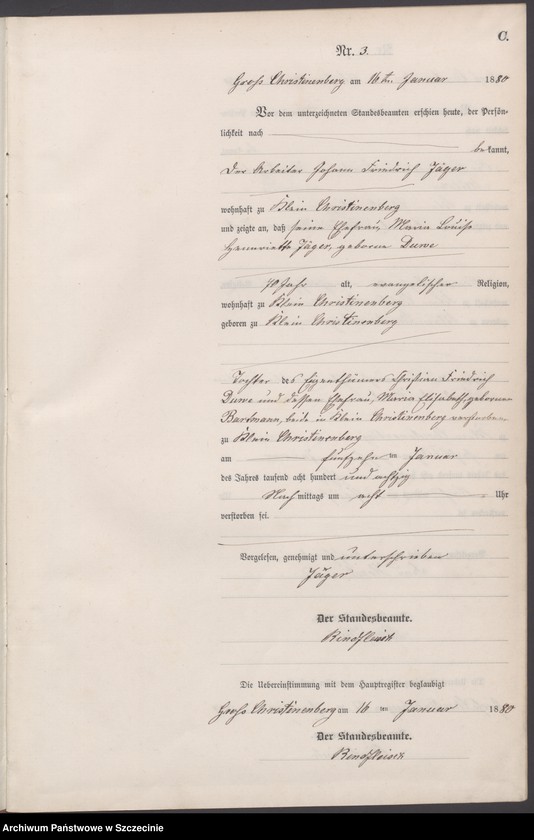 C.
Nr. 3.
Gross Christinenberg am 16ten Januar 1880
Vor dem unterzeichneten Standesbeamten erschien heute, der Persön-
lichkeit nach
bekannt,
Der Arbeiter Johann Friedrich Jäger
wohnhaft zu Klein Christinenberg
und zeigte an, daß seine Ehefrau Maria Louise
Henriette Jäger, geborne Duwe
70 Jahr alt, evangelischer Religion,
wohnhaft zu Klein Christinenberg
geboren zu Klein Christinenberg
Tochter des Eigenthümers Christian Friedrich
Duwe und dessen Ehefrau, Maria Elisabeth, geborenen
Bartmann, beide in Klein Christinenberg verstorben
zu Klein Christinenberg
am fünfzehn ten Januar
des Jahres tausend acht hundert und achtzig
Nachmittags um acht Uhr
verstorben sei.
Vorgelesen, genehmigt und unterschrieben
Jäger
Der Standesbeamte.
Rindfleisch
Die Uebereinstimmung mit dem Hauptregister beglaubigt
Gross Christinenberg am 16 ten Januar 1880
Der Standesbeamte.
Rindfleisch
Archiwum Państwowe w Szczecinie